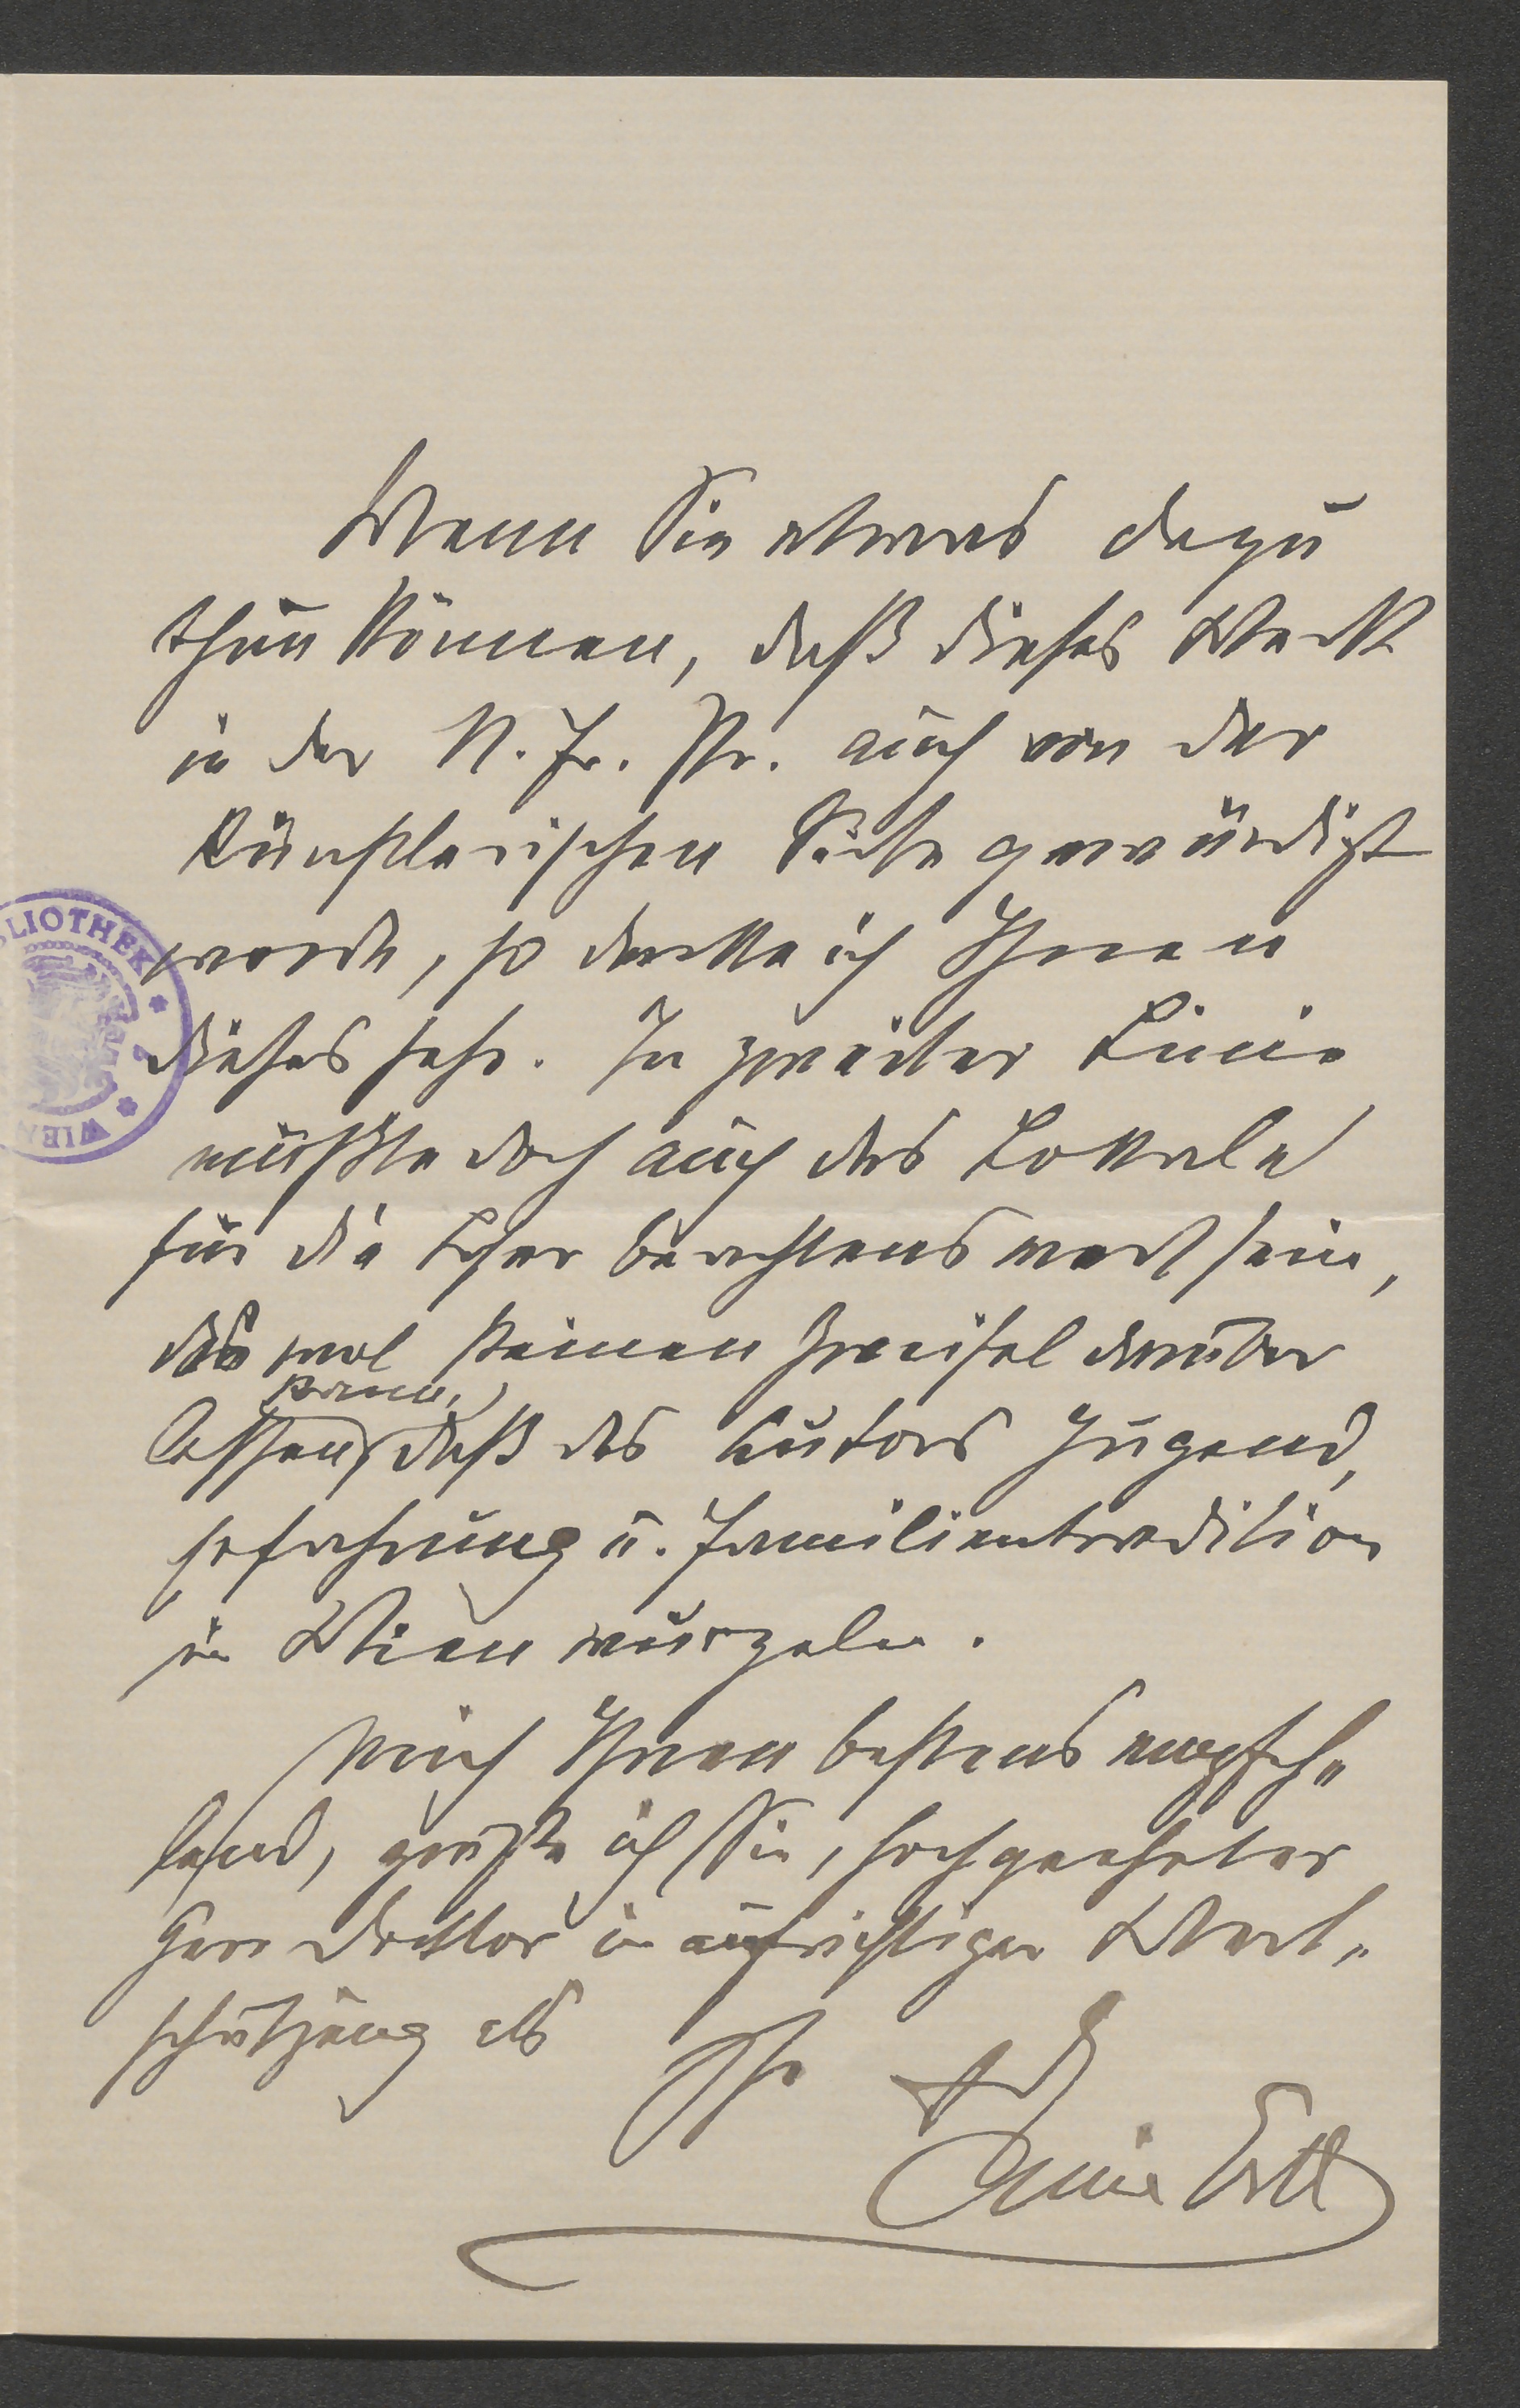 Wenn Sie etwas dazu
thun können, daß dieses Werk
in der N. Fr. Pr. auch von der
künstlerischen Seite gewürdigt
werde, so danke ich Ihnen
dieses sehr. In zweiter Linie
müßte doch auch das Lokale
für die Leser beachtenswert sein,
das wol keinen Zweifel darüber
kann,
lassen, daß des Autors Jugend,
erfahrung u. Familientradition
in Wien wurzeln.
Mich Ihnen bestens empfeh„
lend, grüße ich Sie, hochgeehrter
Herr Doktor in aufrichtiger Wert„
schätzung als
Ihr
Emil Ertl
BLIOTHEK * WIEN *